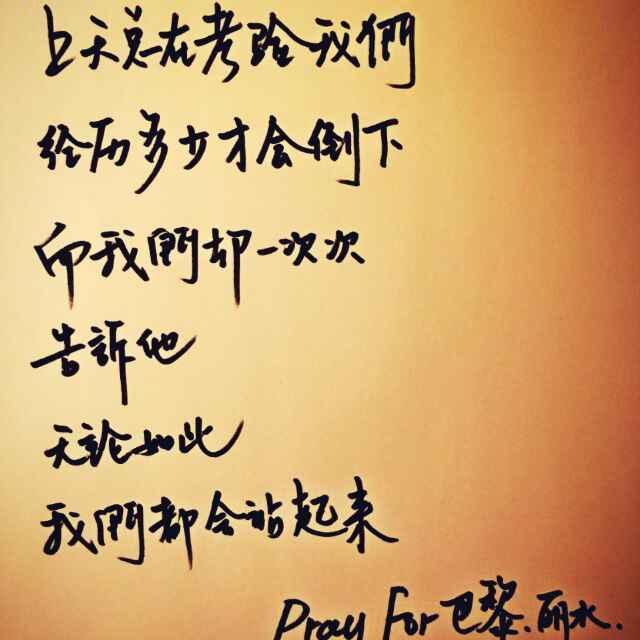 上天总在考验我們
经历多少才会倒下
而我們却一次次
告訴他
无论如此
我們都会站起来
Pray for 巴黎.丽水.